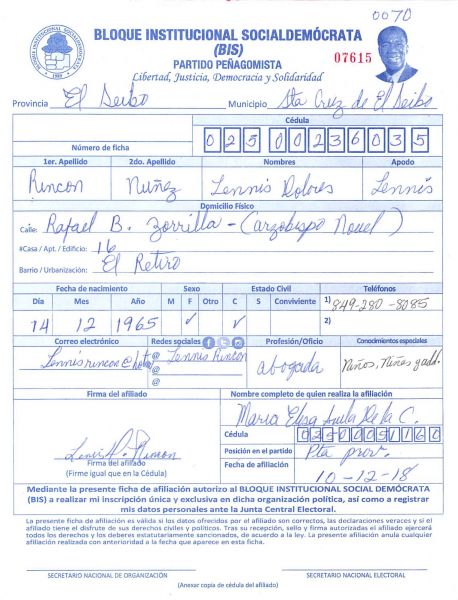 0070
BLOQUE INSTITUCIONAL SOCIALDEMÓCRATA
(BIS)
PARTIDO PEÑAGOMISTA
07615
Libertad, Justicia, Democracia y Solidaridad
Provincia El Seibo Municipio Sta Cruz de El Seibo
Cédula
Número de ficha 025 0023603 5
1er. Apellido 2do. Apellido Nombres Apodo
Rincon Nuñez Lennis Dolores Lennis
Domicilio Físico
Calle: Rafael B. Zorrilla - (Arzobispo Nouel)
#Casa / Apt. / Edificio: 16
Barrio / Urbanización: El Retiro
Fecha de nacimiento Sexo Estado Civil Teléfonos
Día Mes Año M F Otro C S Conviviente 1) 849-280-8085
14 12 1965 ✓ ✓ 2)
Correo electrónico Redes sociales Profesión/Oficio Conocimientos especiales
Lennisrincon@hot @ Lennis Rincon abogada Niños, Niñas y adol.
@
@
Firma del afiliado Nombre completo de quien realiza la afiliación
Maria Elisa Avila De la C.
Cédula
02500051160
Posición en el partido Pta prov.
Firma del afiliado
(Firme igual que en la Cédula)
Fecha de afiliación 10-12-18
Mediante la presente ficha de afiliación autorizo al BLOQUE INSTITUCIONAL SOCIAL DEMÓCRATA
(BIS) a realizar mi inscripción única y exclusiva en dicha organización política, así como a registrar
mis datos personales ante la Junta Central Electoral.
La presente ficha de afiliación es válida si los datos ofrecidos por el afiliado son correctos, las declaraciones veraces y si el
afiliado tiene el disfrute de sus derechos civiles y políticos. Tras su recepción, sello y firma autorizada el afiliado ejercerá
todos los derechos y los deberes estatutariamente sancionados, de acuerdo a la ley. La presente afiliación anula cualquier
afiliación realizada con anterioridad a la fecha que aparece en esta ficha.
SECRETARIO NACIONAL DE ORGANIZACIÓN SECRETARIO NACIONAL ELECTORAL
(Anexar copia de cédula del afiliado)